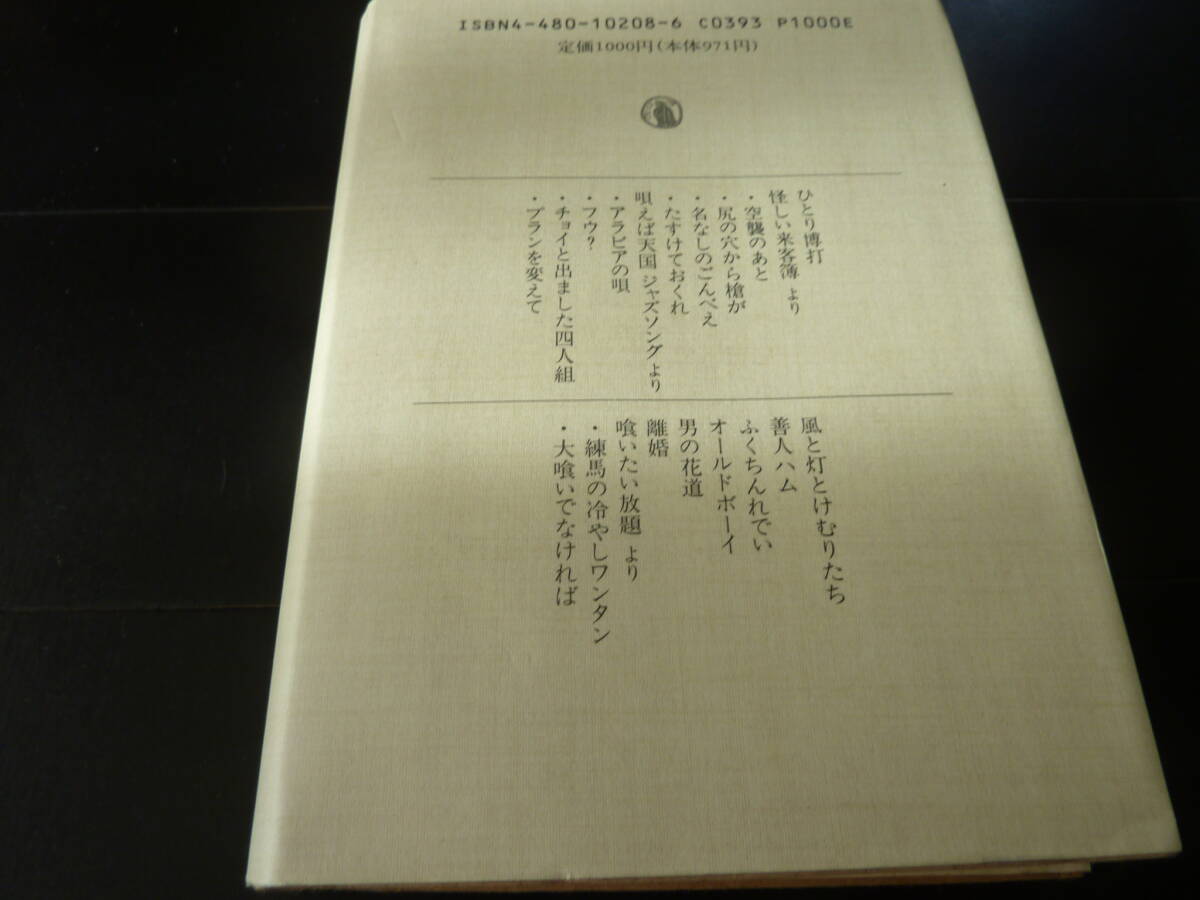 ISBN4-480-10208-6 C0393 P1000E
定価1000円(本体971円)
ひとり博打
怪しい来客簿 より
・空襲のあと
・尻の穴から槍が
・名なしのごんべえ
・たすけておくれ
唄えば天国 ジャズソング より
・アラビアの唄
・フウ?
・チョイと出ました四人組
・プランを変えて
風と灯とけむりたち
善人ハム
ふくちんれでい
オールドボーイ
男の花道
離婚
喰いたい放題 より
・練馬の冷やしワンタン
・大喰いでなければ